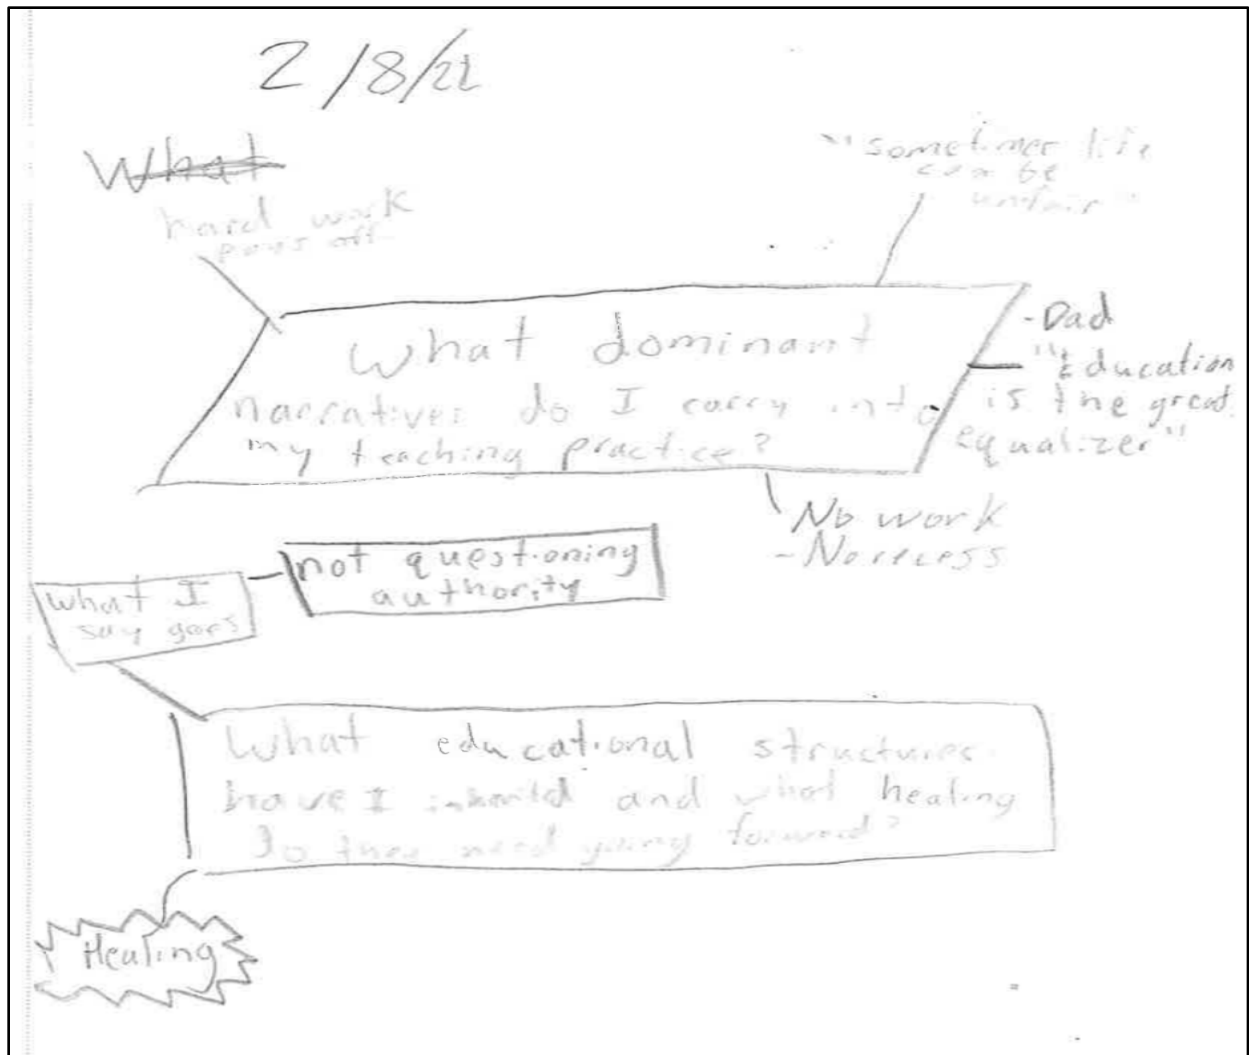 2/8/22
What
hard work
pays off
"sometimes life
can be
unfair"
What dominant
narratives do I carry into
my teaching practice?
-Dad
"Education
is the great
equalizer"
No work
-No recess
not questioning
authority
what I
say goes
What educational structures
have I inherited and what healing
do they need going forward?
Healing